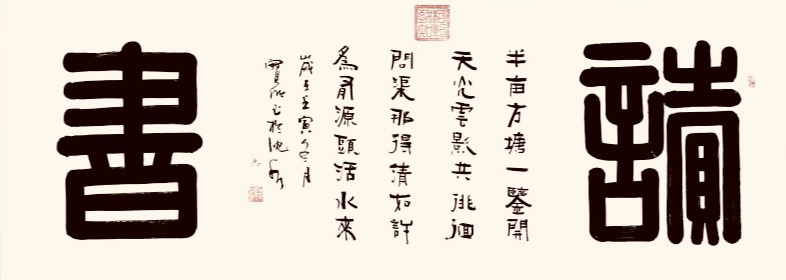 讀
半亩方塘一鑒開
天光雲影共徘徊
問渠那得清如許
為有源頭活水來
歲在壬寅冬月
書